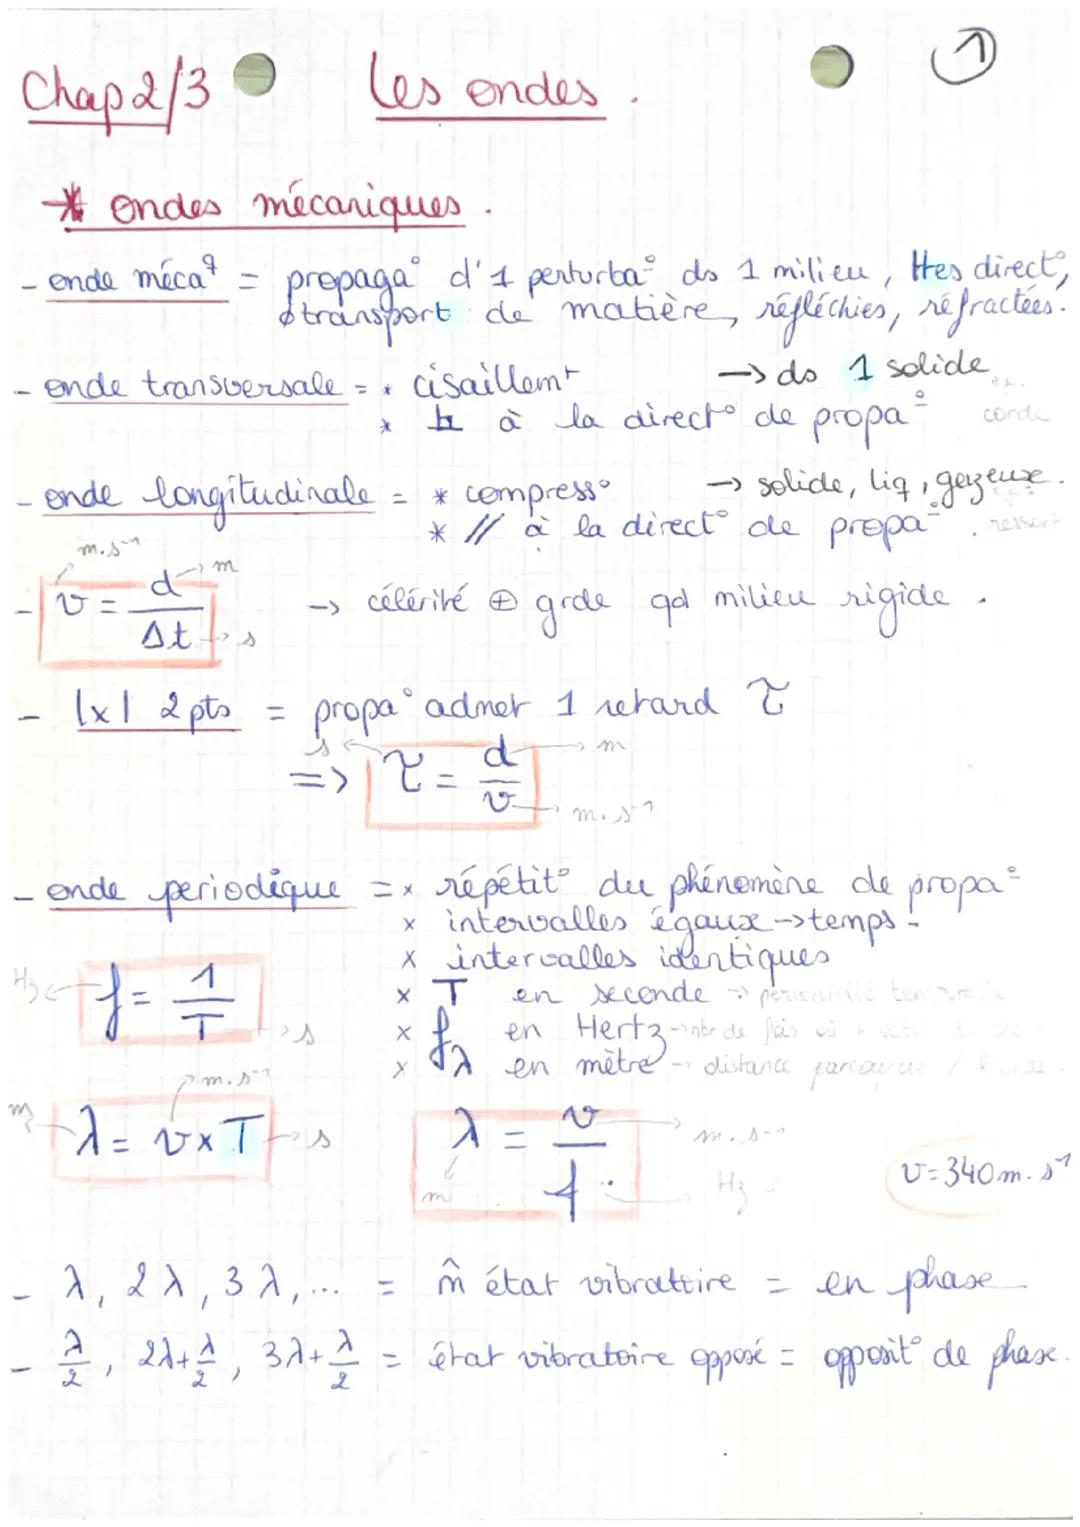 Chap 2/3 Les ondes. 1
* ondes mécaniques.
- onde méca^q = propaga° d'1 perturba° ds 1 milieu, ttes direct°,
∅ transport de matière, réfléchies, réfractées.
- onde transversale = * cisaillemt → ds 1 solide ex.
* ⊥ à la direct° de propa° corde
- onde longitudinale = * compress° → solide, liq, gazeuse.
* // à la direct° de propa°. ressort
m.s⁻¹
- v = d/Δt m s → célérité ⊕ grde qd milieu rigide.
- |x| 2 pts = propa° admet 1 retard τ
=> s τ = d/v m m.s⁻¹
- onde periodique = x répétit° du phénomène de propa°
x intervalles égaux → temps.
x intervalles identiques
Hz f = 1/T s x T en seconde →
x f en Hertz → nbr de fois où
x λ en mètre → distance parcourue /
m λ = v x T m.s⁻¹ s λ = v/f m m.s⁻¹ Hz v = 340 m.s⁻¹
- λ, 2λ, 3λ,... = m̂ état vibrattire = en phase
- λ/2, 2λ+λ/2, 3λ+λ/2 = état vibratoire opposé = opposit° de phase.